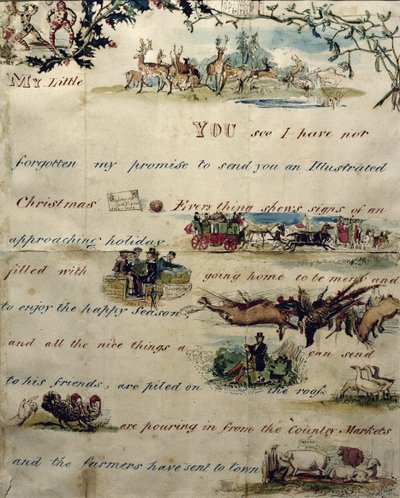 MY Little
YOU see I have not
forgotten my promise to send you an Illustrated
Christmas Every thing shews signs of an
approaching holiday
filled with going home to be merry and
to enjoy the happy Season,
and all the nice things a can send
to his friends, are piled on the roof
are pouring in from the Country Markets
and the farmers have sent to town